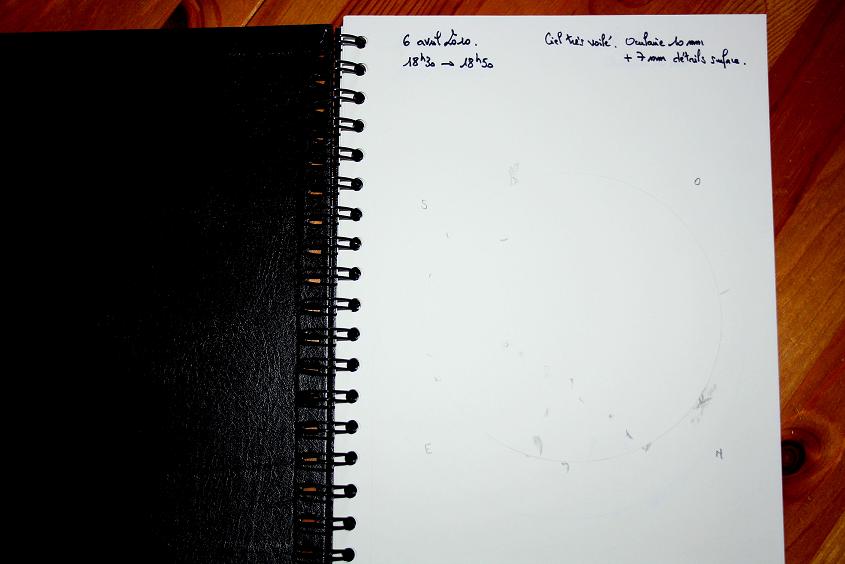 6 avril 2010.
18h30 → 18h50
Ciel très voilé. Oculaire 10 mm
+ 7 mm détails surface.
S
O
E
N